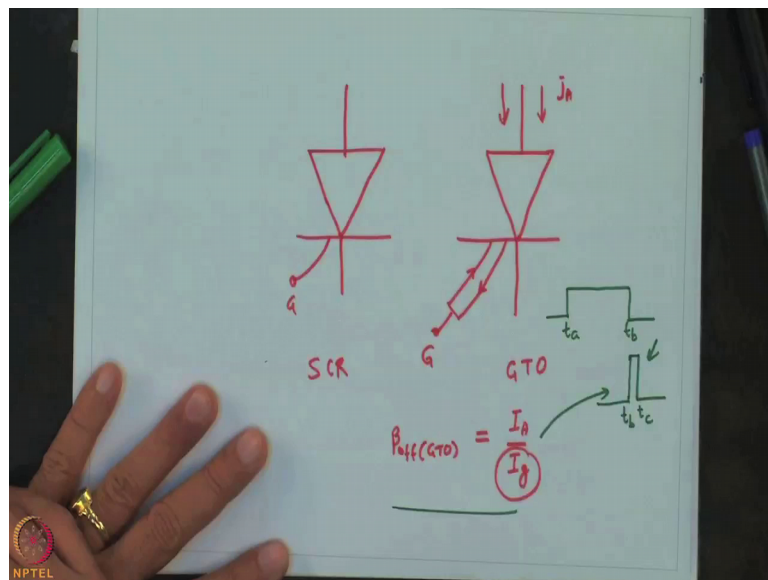 j_A
G
G
SCR
GTO
t_a t_b
t_b t_c
β_off(GTO) = I_A / I_g
NPTEL